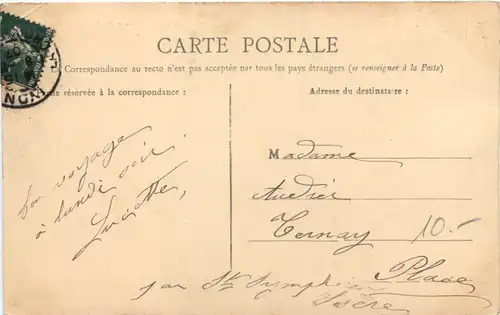 CARTE POSTALE
La Correspondance au recto n'est pas acceptée par tous les pays étrangers (se renseigner à la Poste)
réservée à la correspondance :
Adresse du destinataire :
bon voyage
à lundi soir.
Lucette,
Madame
Audier
Ternay
10.-
Place
par St Symphorien
Isère